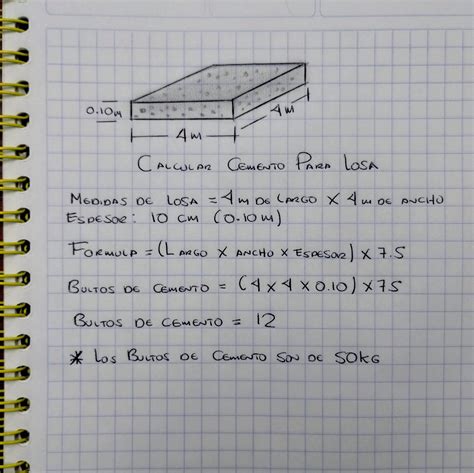 0.10M
4M
4M
CALCULAR CEMENTO PARA LOSA
MEDIDAS DE LOSA = 4M DE LARGO X 4M DE ANCHO
ESPESOR: 10 CM (0.10M)
FORMULA = (LARGO X ANCHO X ESPESOR) X 7.5
BULTOS DE CEMENTO = (4 X 4 X 0.10) X 7.5
BULTOS DE CEMENTO = 12
* LOS BULTOS DE CEMENTO SON DE 50KG